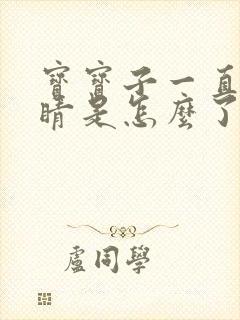 寶寶子一直
睛是怎麼了
盧同學